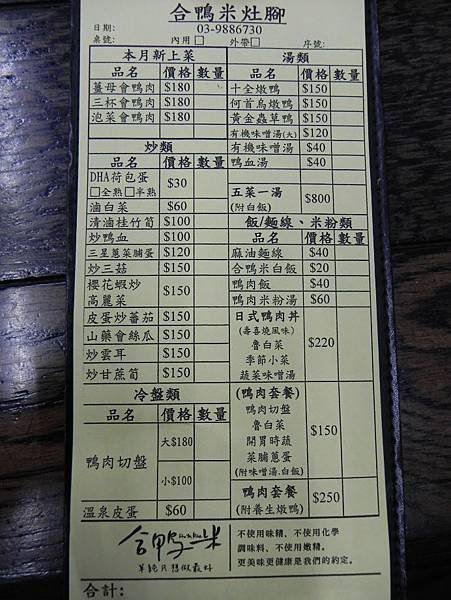 合鴨米灶腳
日期: 03-9886730
桌號: 內用□ 外帶□ 序號:
本月新上菜
品名 價格 數量
薑母會鴨肉 $180
三杯會鴨肉 $180
泡菜會鴨肉 $180
炒類
品名 價格 數量
DHA荷包蛋
□全熟□半熟 $30
滷白菜 $60
清滷桂竹筍 $100
炒鴨血 $100
三星蔥菜脯蛋 $120
炒三菇 $150
櫻花蝦炒
高麗菜 $150
皮蛋炒蕃茄 $150
山藥會絲瓜 $150
炒雲耳 $150
炒甘蔗筍 $150
冷盤類
品名 價格 數量
鴨肉切盤 大$180
小$100
溫泉皮蛋 $60
湯類
品名 價格 數量
十全燉鴨 $150
何首烏燉鴨 $150
黃金蟲草鴨 $150
有機味噌湯(大) $120
有機味噌湯 $40
鴨血湯 $40
五菜一湯
(附白飯) $800
飯/麵線、米粉類
品名 價格 數量
麻油麵線 $40
合鴨米白飯 $20
鴨肉飯 $40
鴨肉米粉湯 $60
日式鴨肉丼
(壽喜燒風味)
魯白菜
季節小菜
蔬菜味噌湯
$220
(鴨肉套餐)
鴨肉切盤
魯白菜
開胃時蔬
菜脯蔥蛋
(附味噌湯.白飯)
$150
鴨肉套餐
(附養生燉鴨) $250
合鴨米
單純只想做最好
不使用味精、不使用化學
調味料、不使用嫩精。
更美味更健康是我們的約定。
合計: